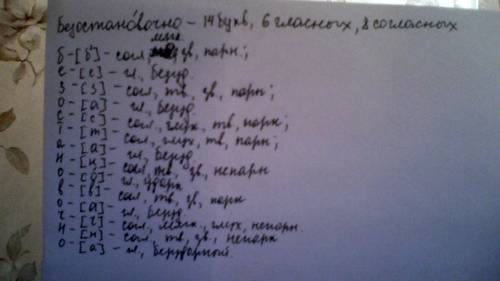 Безостано́вочно – 14 букв, 6 гласных, 8 согласных
б – [б'] – согл, мягк, зв, парн.;
е – [е] – гл, безуд.
з – [з] – согл, тв, зв, парн;
о – [а] – гл, безуд.
с – [с] – согл, глух, тв, парн;
т – [т] – согл, глух, тв, парн;
а – [а] – гл, безуд.
н – [н] – согл, тв, зв, непарн
о – [о] – гл, ударн
в – [в] – согл, тв, зв, парн
о – [а] – гл, безуд.
ч – [ч] – согл, мягк., глух, непарн.
н – [н] – согл, тв, зв, непарн
о – [а] – гл, безударный.